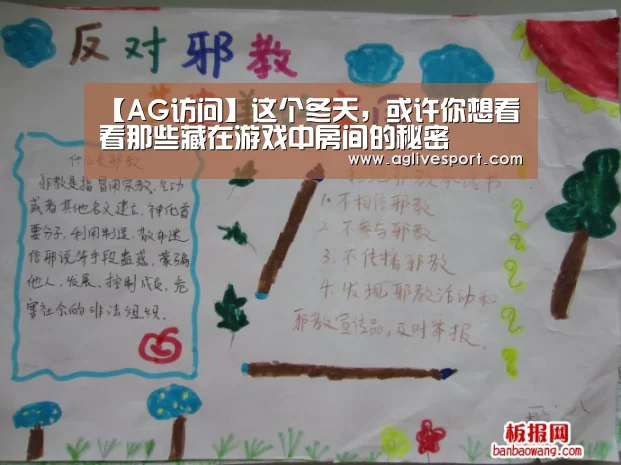 反对邪教
【AG访问】这个冬天，或许你想看
看那些藏在游戏中房间的秘密
www.aglivesport.com
什么是邪教
邪教是指冒用宗教、气功
或者其他名义建立、神化首
要分子，利用制造、散布迷
信邪说等手段蛊惑、蒙骗
他人，发展、控制成员，危
害社会的非法组织.
1. 不相信邪教
2. 不参与邪教
3. 不传播邪教
4. 发现邪教活动和
邪教宣传品，及时举报.
板报网
banbaowang.com